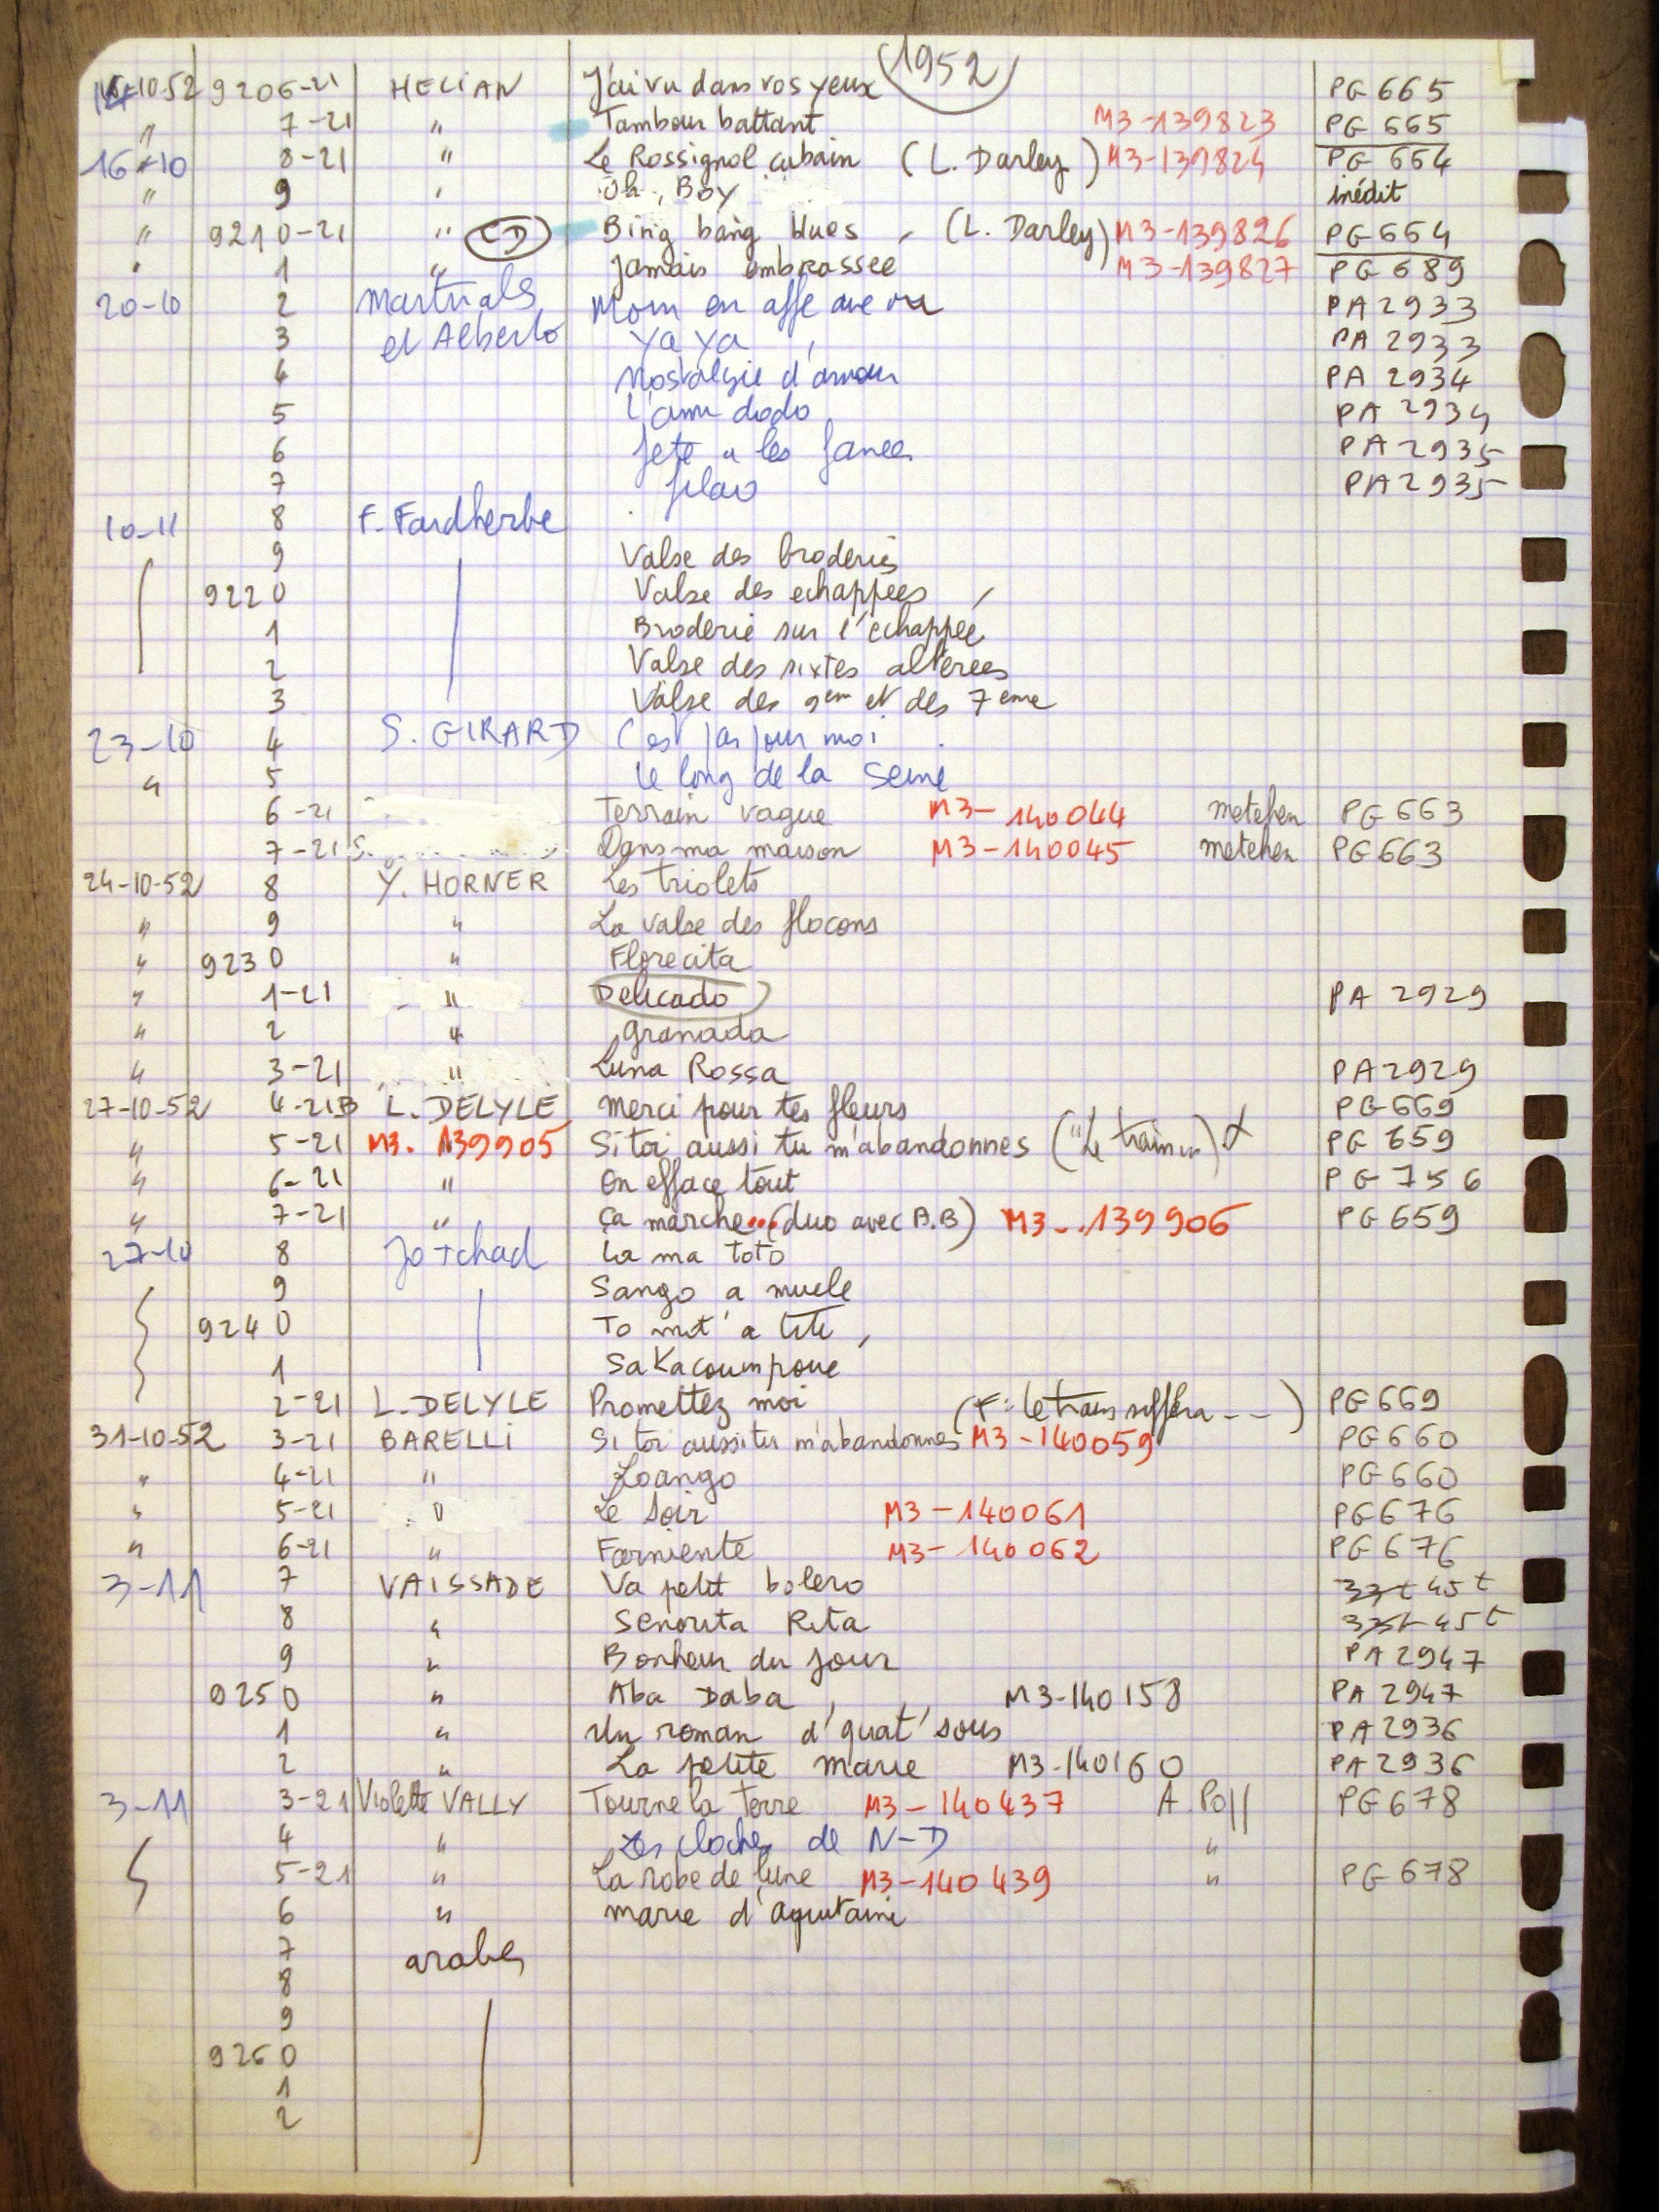 1952
16-10-52 9206-21 HELIAN J'ai vu dans vos yeux PG 665
" 7-21 " Tambour battant M3-139823 PG 665
16-10 8-21 " Le Rossignol cubain (L. Darley) M3-139824 PG 664
" 9 " Oh, Boy inédit
" 9210-21 " CD Bing bang blues (L. Darley) M3-139826 PG 664
" 1 " Jamais embrassée M3-139827 PG 689
20-10 2 Martials PA 2933
3 et Alberto Ya Ya PA 2933
4 Nostalgie d'amour PA 2934
5 L'ami dodo PA 2934
6 PA 2935
7 filao PA 2935
10-11 8 F. Faidherbe
9 Valse des broderies
9220 Valse des echappées
1 Broderie sur l'echappée
2 Valse des sixtes alterées
3 Valse des 9em et des 7eme
23-10 4 S. GIRARD C'est pas pour moi
" 5 Le long de la Seine
6-21 Terrain vague M3-140044 metehen PG 663
7-21 S. Dans ma maison M3-140045 metehen PG 663
24-10-52 8 Y. HORNER Les triolets
" 9 " La valse des flocons
" 9230 " Florecita
" 1-21 " Delicado PA 2929
" 2 " Granada
" 3-21 " Luna Rossa PA 2929
27-10-52 4-21B L. DELYLE Merci pour tes fleurs PG 669
" 5-21 M3. 139905 Si toi aussi tu m'abandonnes ("Le train ") PG 659
" 6-21 " On efface tout PG 756
" 7-21 " Ca marche... (duo avec A.B) M3-.139906 PG 659
27-10 8 Jo tchad La ma toto
9 Sango a muele
9240 To met' a tete
1 Sakacoumpoue
2-21 L. DELYLE Promettez moi PG 669
(F: le train sifflera ---)
31-10-52 3-21 BARELLI Si toi aussi tu m'abandonnes M3-140059 PG 660
" 4-21 " Loango PG 660
" 5-21 " Le soir M3-140061 PG 676
" 6-21 " Farniente M3-140062 PG 676
3-11 7 VAISSADE Va petit bolero 33t 45t
8 " Senorita Rita 33t 45t
9 " Bonheur du jour PA 2947
9250 " Aba Daba M3-140158 PA 2947
1 " Un roman d'quat'sous PA 2936
2 " La petite Marie M3-140160 PA 2936
3-11 3-21 Violette VALLY Tourne la terre M3-140437 A. Poll PG 678
4 " Les cloches de N-D "
5-21 " La robe de lune M3-140439 " PG 678
6 " marie d'aquitaine
7 arabes
8
9
9260
1
2